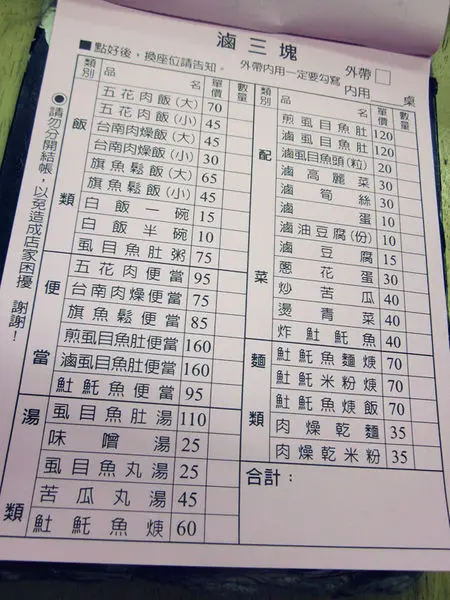 滷三塊
■點好後、換座位請告知。 外帶內用一定要勾寫 外帶□
內用 桌
◉請勿分開結帳，以免造成店家困擾 謝謝！
類別 品名 單價 數量
飯類
五花肉飯(大) 70
五花肉飯(小) 45
台南肉燥飯(大) 45
台南肉燥飯(小) 30
旗魚鬆飯(大) 65
旗魚鬆飯(小) 45
白飯一碗 15
白飯半碗 10
虱目魚肚粥 75
便當
五花肉便當 95
台南肉燥便當 75
旗魚鬆便當 85
煎虱目魚肚便當 160
滷虱目魚肚便當 160
魠魠魚便當 95
湯類
虱目魚肚湯 110
味噌湯 25
虱目魚丸湯 25
苦瓜丸湯 45
魠魚焿 60
類別 品名 單價 數量
配菜
煎虱目魚肚 120
滷虱目魚肚 120
滷虱目魚頭(粒) 20
滷高麗菜 30
滷筍絲 30
滷蛋 10
滷油豆腐(份) 10
滷豆腐 15
蔥花蛋 30
炒苦瓜 40
燙青菜 40
炸𩵚魠魚 40
麵類
𩵚魠魚麵焿 70
𩵚魠米粉焿 70
𩵚魠魚焿飯 70
肉燥乾麵 35
肉燥乾米粉 35
合計：